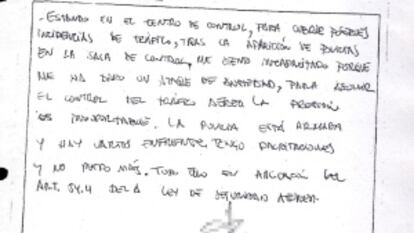 - ESTANDO EN EL CENTRO DE CONTROL, PARA CUBRIR POSIBLES
INCIDENCIAS DE TRÁFICO, TRAS LA APARICIÓN DE POLICÍAS
EN LA SALA DE CONTROL, ME SIENTO INCAPACITADO PORQUE
ME HA DADO UN ATAQUE DE ANSIEDAD, PARA ASUMIR
EL CONTROL DEL TRÁFICO AÉREO. LA PRESIÓN
ES INSOPORTABLE. LA POLICIA ESTÁ ARMADA
Y HAY VARIOS ENFRENTE, TENGO PALPITACIONES
Y NO PUEDO MÁS. TODO ELLO EN APLICACIÓN DEL
ART. 34.4 DE LA LEY DE SEGURIDAD AÉREA.